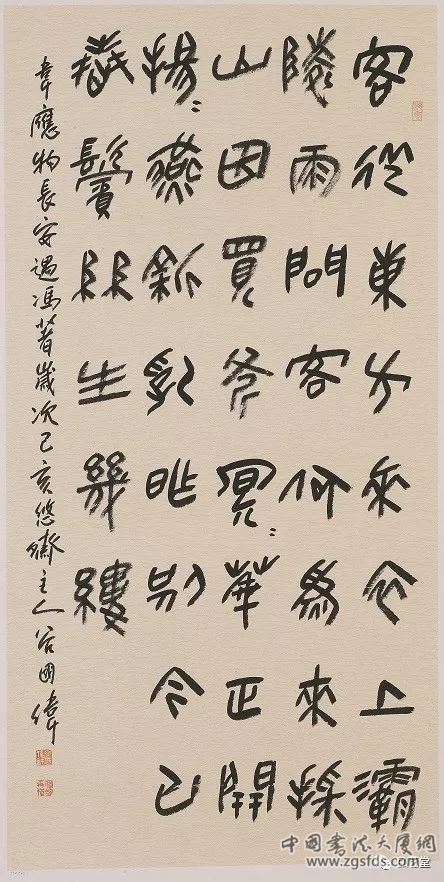 客從東方來衣上灞
陵雨問客何為來採
山因買斧冥=華正開
楊=燕新乳昨別今已
春鬢絲生幾縷
韋應物長安遇馮著歲次己亥悠齋主人谷國偉
中國書法大廈網
www.zgsfds.com